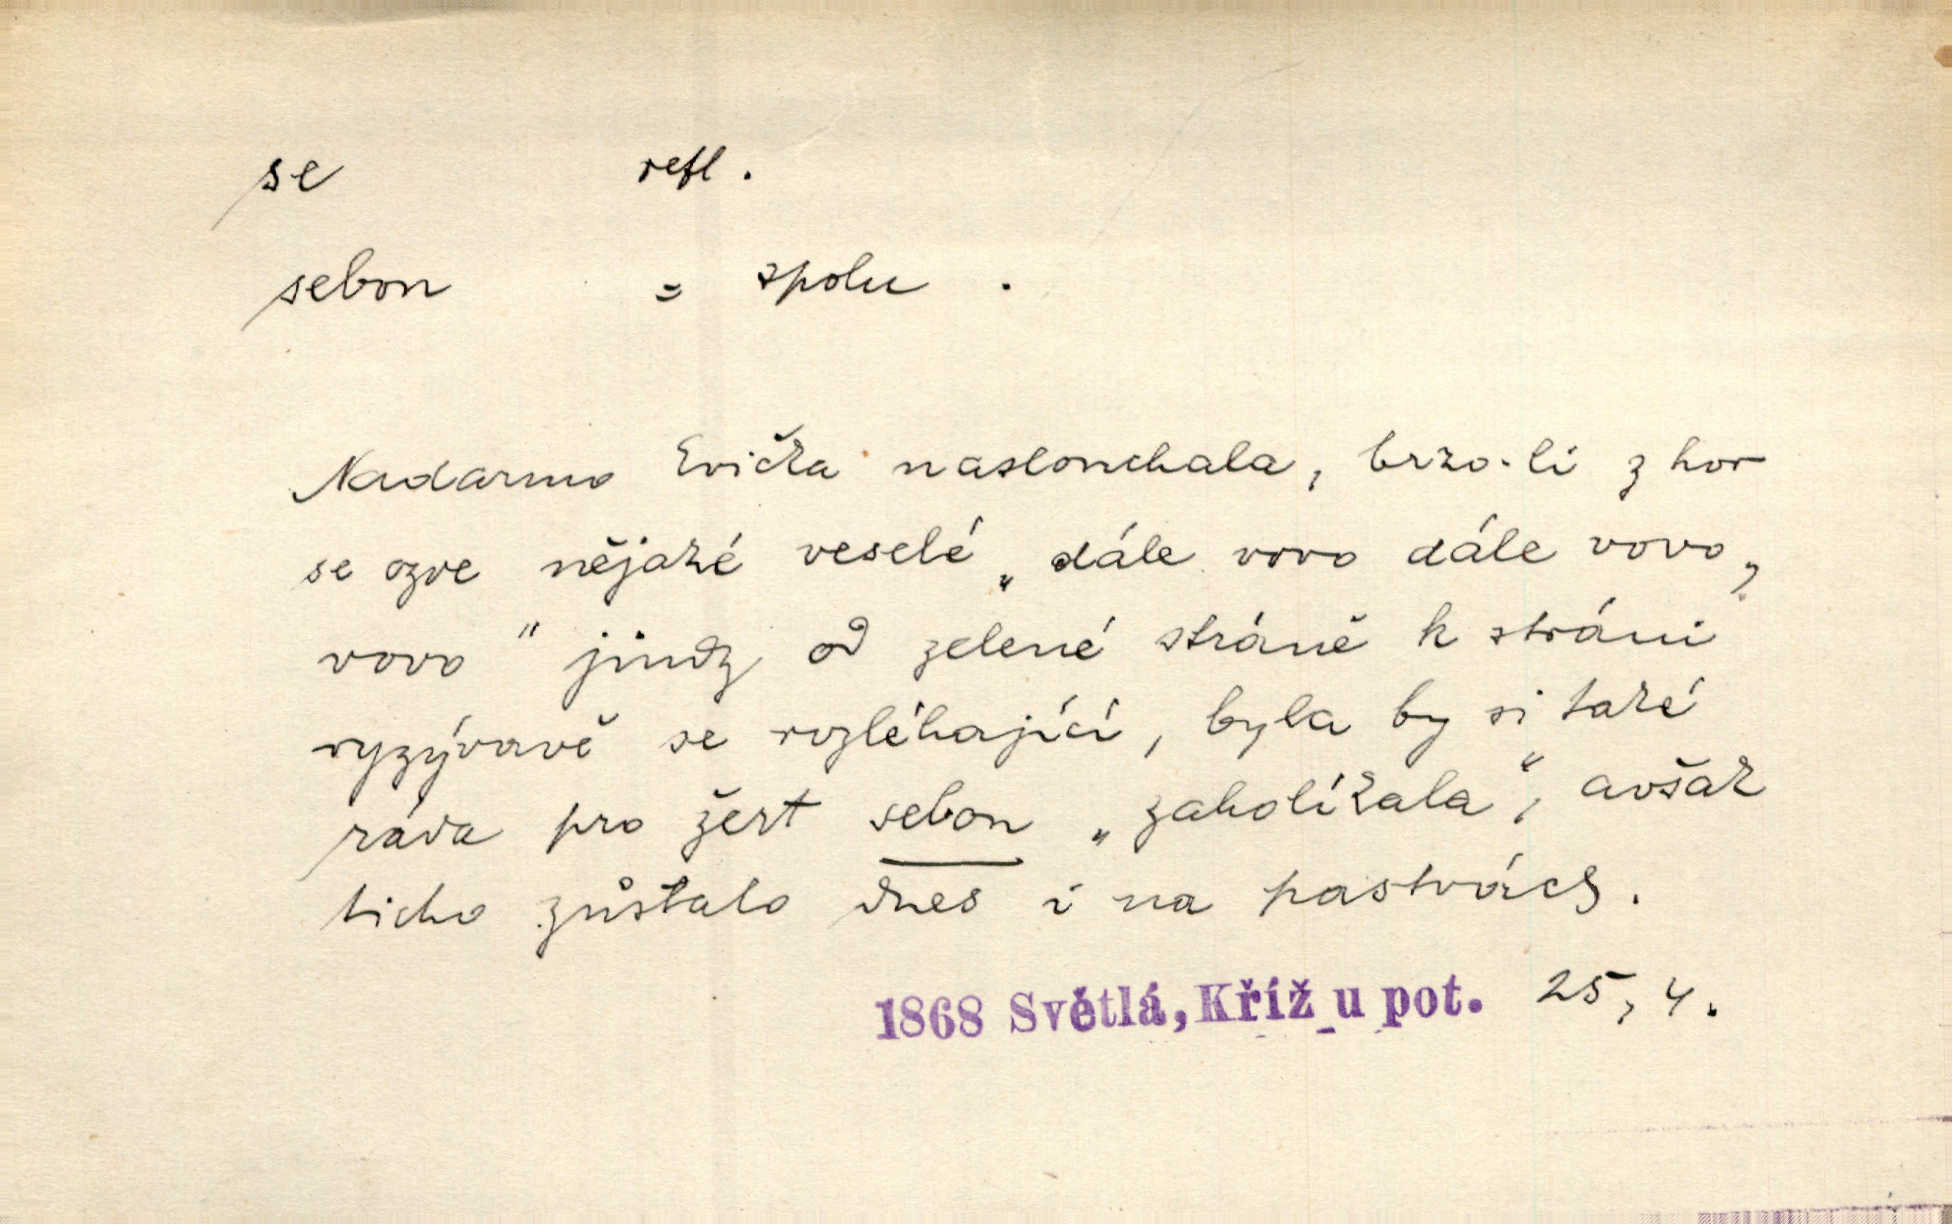 se refl.
sebou = spolu.
Nadarmo Evička naslouchala, brzo-li z hor
se ozve nějaké veselé „dále vovo dále vovo,
vovo" jindy od zelené stráně k stráni
vyzývavě se rozléhající, byla by si také
ráda pro žert sebou „zaholíkala", avšak
ticho zůstalo dnes i na pastvách.
1868 Světlá, Kříž u pot. 25, 4.